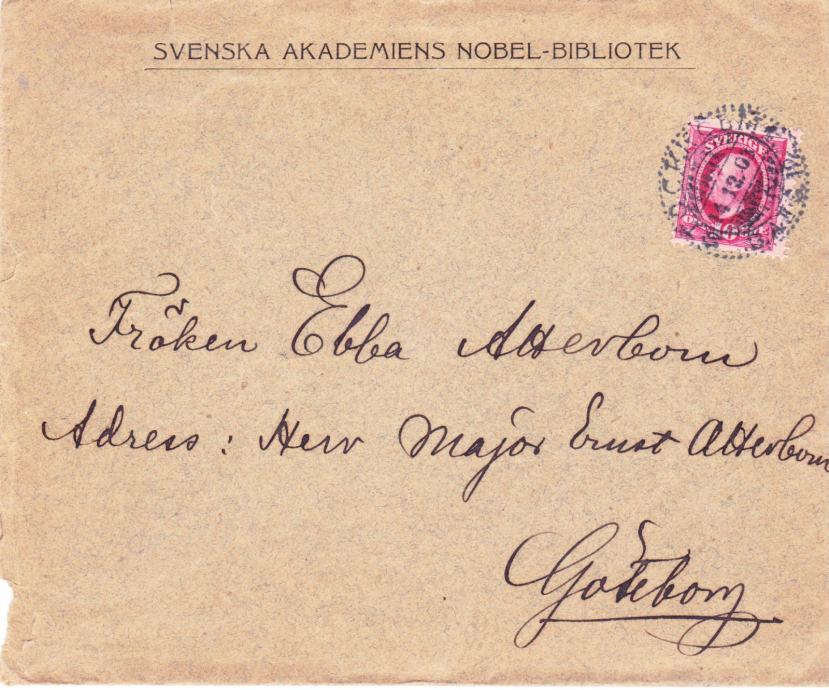 SVENSKA AKADEMIENS NOBEL-BIBLIOTEK
SVERIGE
Fröken Ebba Atterbom
Adress: Herr Major Ernst Atterbom
Göteborg